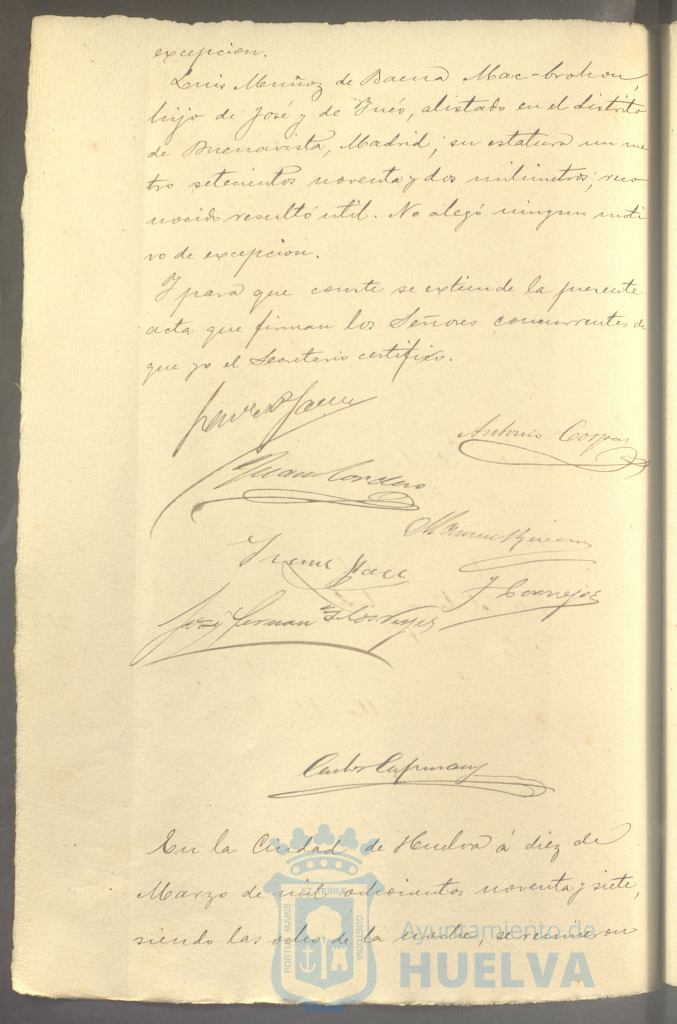 excepcion.
Luis Muñoz de Baena Mac-brohon,
hijo de José y de Inés, alistado en el distrito
de Buenavista, Madrid; su estatura un me
tro setecientos noventa y dos milimetros; reco
nocido resultó util. No alegó ningun moti
vo de excepcion.
Y para que conste se extiende la presente
acta que firman los Señores concurrentes de
que yo el Secretario certifico.
Antonio Corpas
Juan Cordero
Manuel
J Cornejo
José Fernan
Carlos
En la Ciudad de Huelva á diez de
Marzo de mil ochocientos noventa y siete,
siendo las ocho de la noche, se reunieron
PORTUS MARIS ET TERRÆ CUSTODIA
Ayuntamiento de
HUELVA